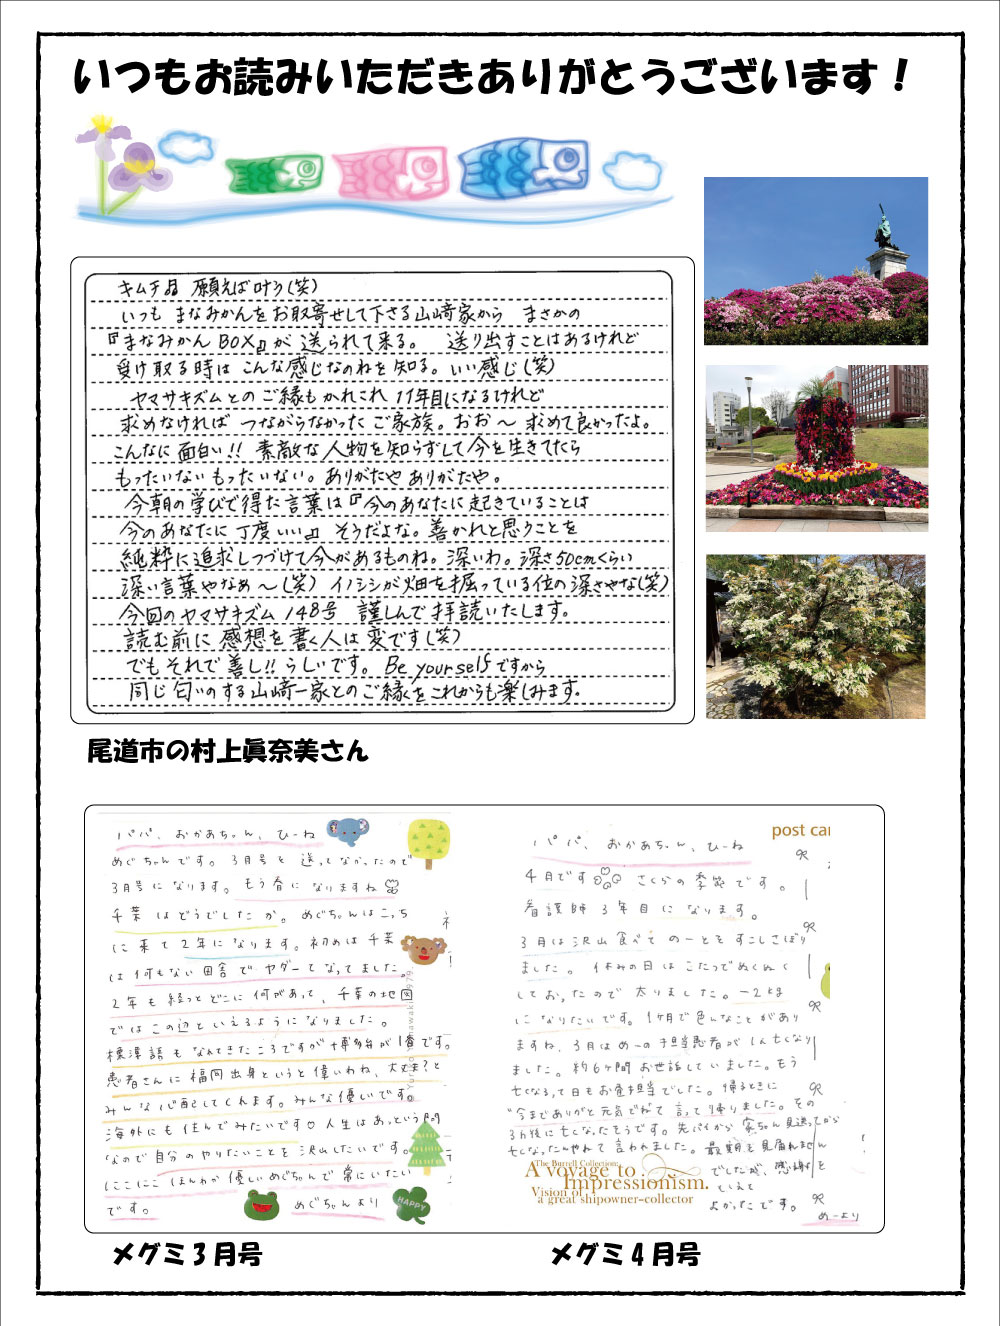 いつもお読みいただきありがとうございます！
キムチ品 願えば叶う(笑)
いつも まなみかんをお取寄せして下さる山﨑家から まさかの
『まなみかん BOX』が 送られて来る。 送り出すことはあるけれど
受け取る時は こんな感じなのねを知る。いい感じ(笑)
ヤマサキズムとの ご縁も かれこれ 11年目になるけれど
求めなければ つながらなかった ご家族。おお〜 求めて良かったよ。
こんなに 面白い!! 素敵な 人物を知らずして今を生きてたら
もったいない もったいない。ありがたや ありがたや。
今朝の学びで得た言葉は『今のあなたに起きていることは
今のあなたに 丁度いい』 そうだよな。善かれと思うことを
純粋に追求しつづけて今があるものね。深いわ。深さ50cmくらい
深い言葉やなぁ〜(笑) イノシシが畑を掘っている位の深さやな(笑)
今回のヤマサキズム 148号 謹しんで拝読いたします。
読む前に 感想を書く人は 変です(笑)
でも それで善し!! らしいです。Be yourself ですから
同じ匂いのする山﨑一家とのご縁をこれからも楽しみます。
尾道市の村上眞奈美さん
パパ、おかあちゃん、ひーね
めぐちゃんです。3月号を送ってなかったので
3月号になります。もう春になりますね
千葉はどうでしたか。めぐちゃんはこっち
に来て2年になります。初めは千葉
は何もない田舎でヤダーてなってました。
2年も経つとどこに何があって、千葉の地図
ではこの辺といえるようになりました。
標準語もなれてきたころですが博多弁が1番です。
患者さんに福岡出身というと偉いわね、大丈夫?と
みんな心配してくれます。みんな優しいです。
海外にも住んでみたいです♡人生はあっという間
なので自分のやりたいことを沢山したいです。
にこにこ ほんわか 優しいめぐちゃんで常にいたい
です。
めぐちゃんより
HAPPY
メグミ3月号
post car
パパ、おかあちゃん、ひーね
4月です さくらの季節です。
看護師3年目になります。
3月は沢山食べて のーとをすこしさぼり
ました。休みの日はこたつでぬくぬく
しておったので太りました。-2kg
になりたいです。1ヶ月で色んなことがあり
ますね、3月はめーの担当患者が1人亡くなり
ました。約6ヶ月間お世話していました。もう
亡くなる日もお昼担当でした。帰るときに
"今までありがと元気でねて言って帰りました。その
3h後に亡くなったそうです。先パイから
亡くなったんやねて言われました。最期を見届れません
でしたが、感謝を
つたえて
よかったです。
めーより
The Burrell Collection:
A voyage to
Impressionism.
Vision of
a great shipowner-collector
メグミ4月号